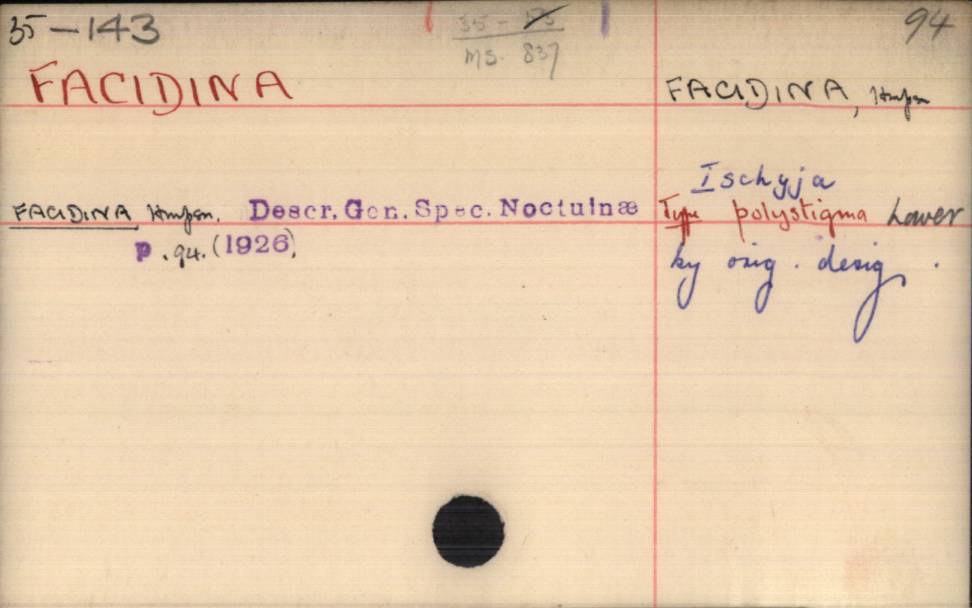 35-143
35-
MS. 837
94
FACIDINA
FACIDINA, Hmpsn
FACIDINA Hmpsn. Descr. Gen. Spec. Noctuinæ
p. 94. (1926)
Ischyja
Type polystigma Lower
by orig. desig.